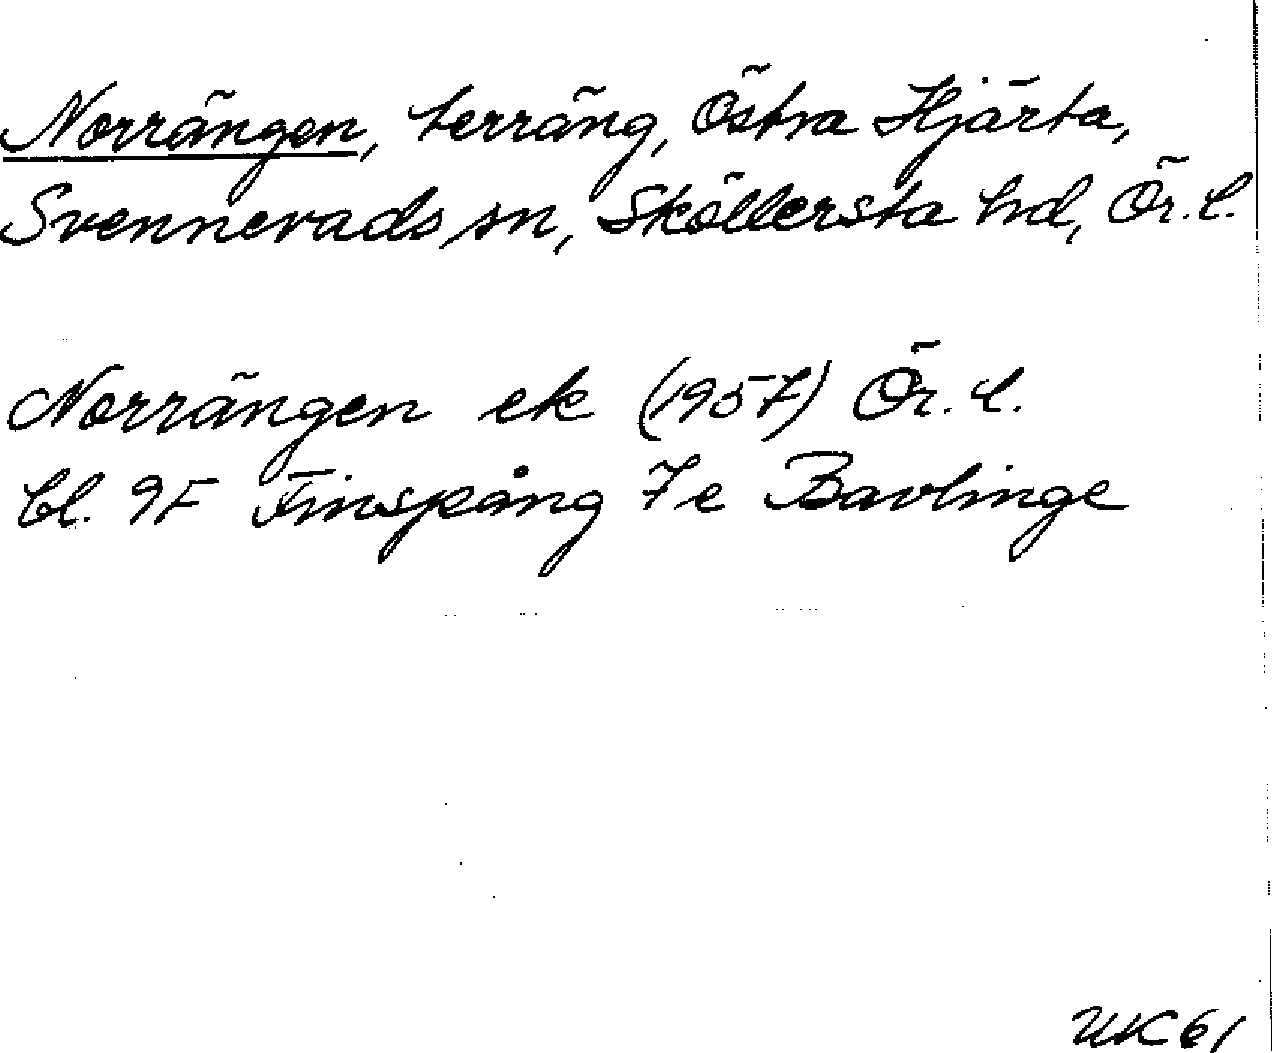 Norrängen, terräng, Östra Hjärta,
Svennevads sn, Sköllersta hd, Ör. l.
Norrängen ek (1957) Ör. l.
bl. 9F Finspång 7e Bavlinge
UK 61